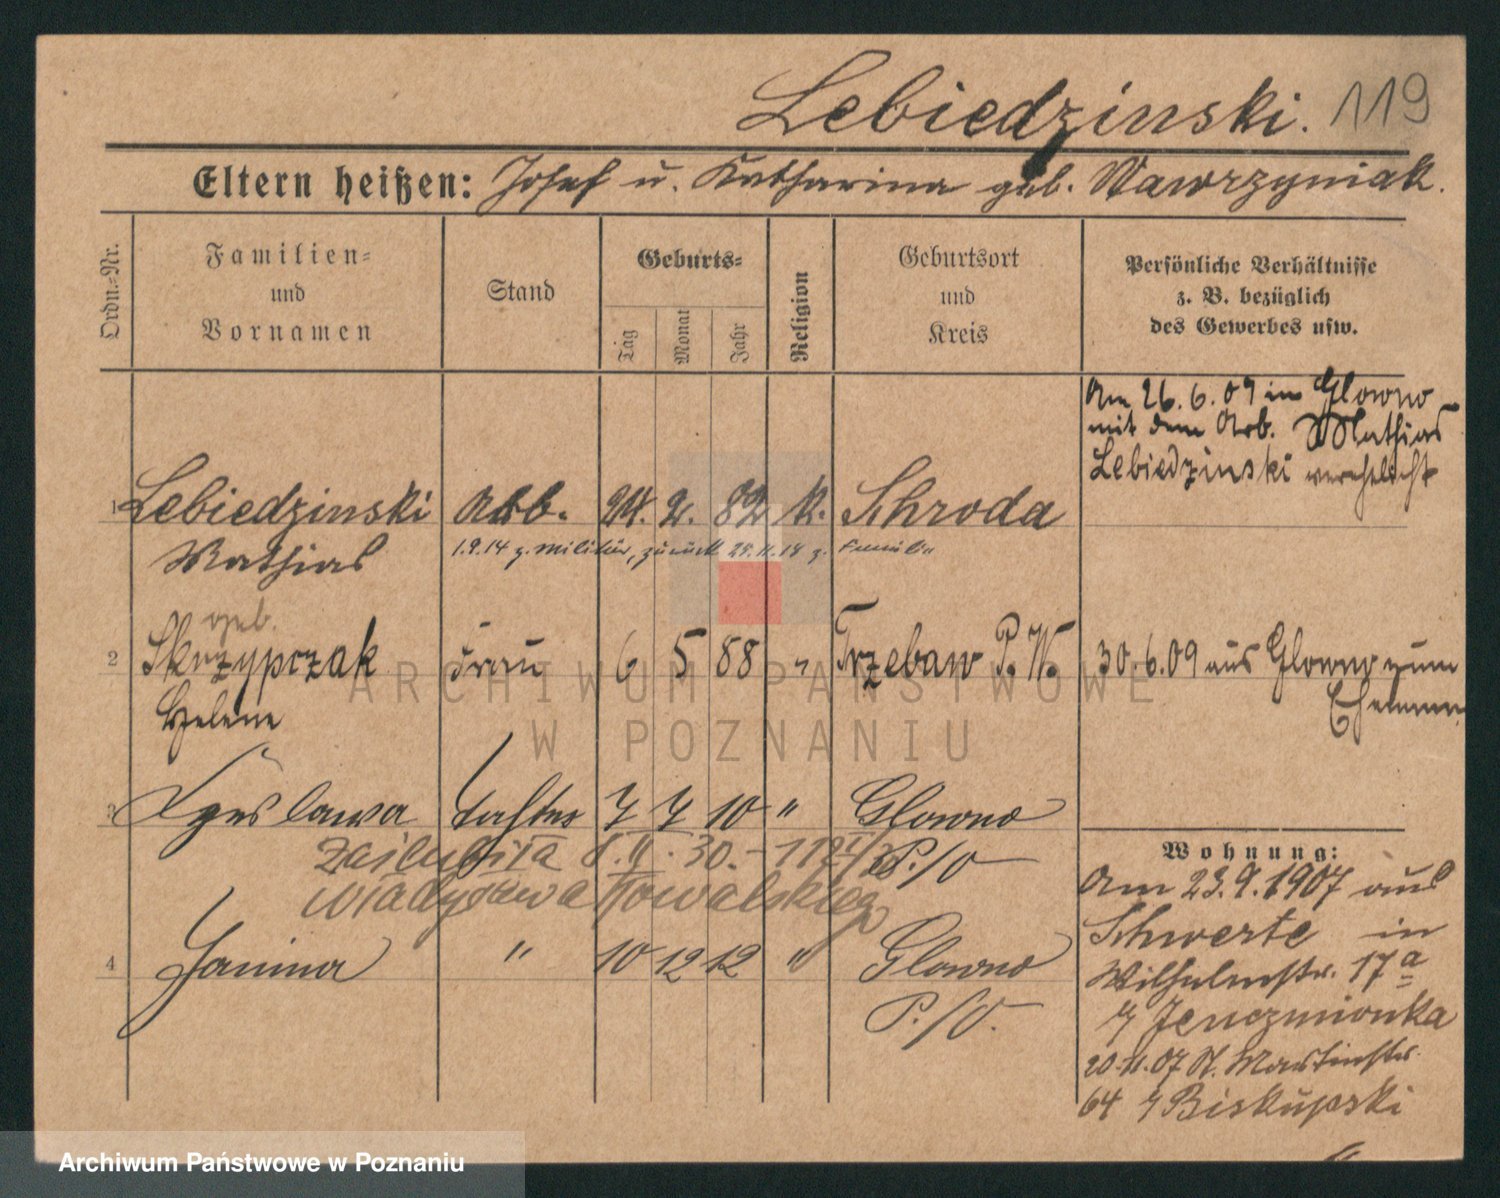 Lebiedzinski. 119
Eltern heißen: Josef u. Katharina geb. Wawrzyniak.
Ordn.-Nr.
Familien-
und
Vornamen
Stand
Geburts-
Tag
Monat
Jahr
Religion
Geburtsort
und
Kreis
Persönliche Verhältnisse
z. B. bezüglich
des Gewerbes usw.
Am 26.6.09 in Glowno
mit dem Arb. Mathias
Lebiedzinski verehelicht
1 Lebiedzinski Arb. 24. 2. 82 k. Schroda
Mathias 1.9.14 z. Militär, zurück 28.11.18 z. Famil.
geb.
2 Skrzypczak Frau 6 5 88 " Trzebaw P. W. 30.6.09 aus Glowno zum
Helene Ehemann
3 Tochter 7 7 10 " Glowno
P./O
zaślubiła 8.II.30.
Władysława Kowalskiego
4 Janina " 10 12 12 " Glowno
P./O.
Wohnung:
Am 23.9.1907 aus
Schwerte in
Wilhelmstr. 17a
20.11.07 St. Martinstr.
64 Biskupski
ARCHIWUM PAŃSTWOWE
W POZNANIU
Archiwum Państwowe w Poznaniu